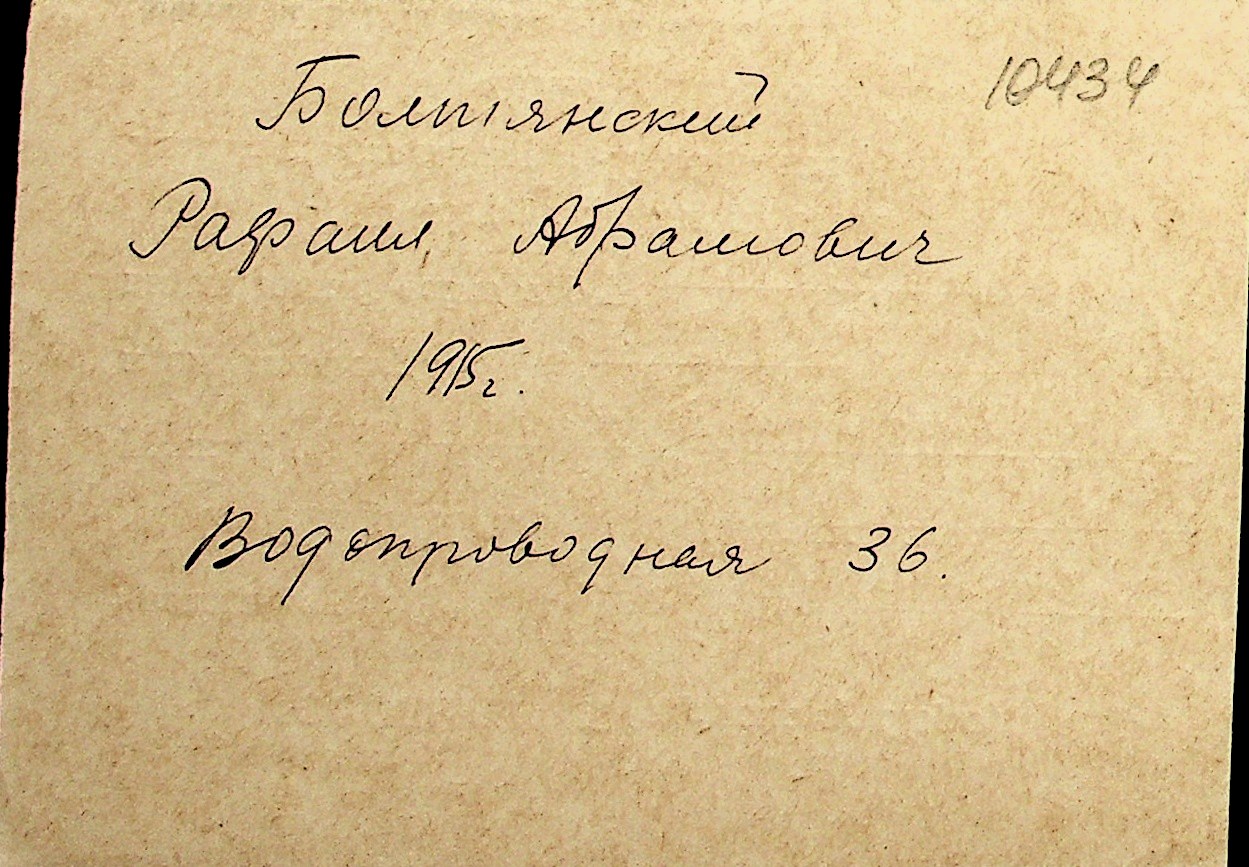 10434
Болтянский
Рафаил Абрамович
1915г.
Водопроводная 36.